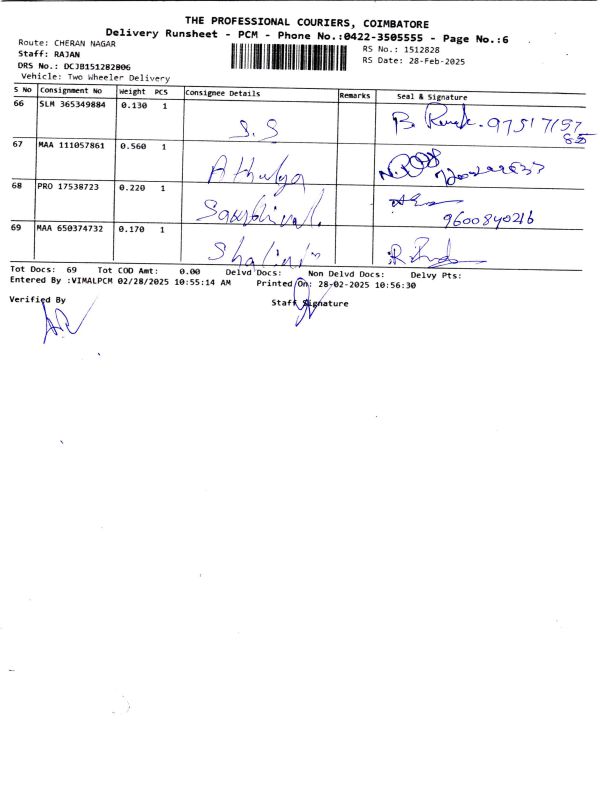 THE PROFESSIONAL COURIERS, COIMBATORE
Delivery Runsheet - PCM - Phone No.:0422-3505555 - Page No.:6
Route: CHERAN NAGAR
RS No.: 1512828
Staff: RAJAN
RS Date: 28-Feb-2025
DRS No.: DCJB151282806
Vehicle: Two Wheeler Delivery
S No Consignment No Weight PCS Consignee Details Remarks Seal & Signature
66 SLM 365349884 0.130 1 S.S B.
67 MAA 111057861 0.560 1 Athulya
68 PRO 17538723 0.220 1 9600840216
69 MAA 650374732 0.170 1 Shalini
Tot Docs: 69 Tot COD Amt: 0.00 Delvd Docs: Non Delvd Docs: Delvy Pts:
Entered By :VIMALPCM 02/28/2025 10:55:14 AM Printed On: 28-02-2025 10:56:30
Verified By Staff Signature